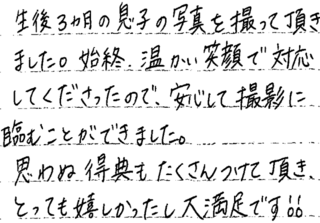 生後3ヵ月の息子の写真を撮って頂き
ました。始終、温かい笑顔で対応
してくださったので、安心して撮影に
臨むことができました。
思わぬ得典もたくさんつけて頂き、
とっても嬉しかったし大満足です!!